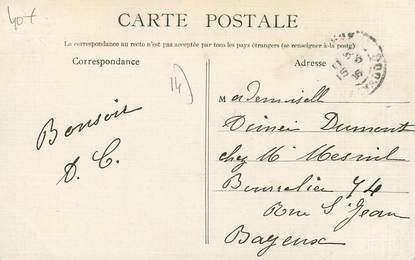 40+
CARTE POSTALE
La correspondance au recto n'est pas acceptée par tous les pays étrangers (se renseigner à la poste)
Correspondance
Adresse
14)
Bonsoir
D. C.
Mademoiselle
Dumont
chez Mr Mesnil
Bourrelier 74
Rue St Jean
Bayeux